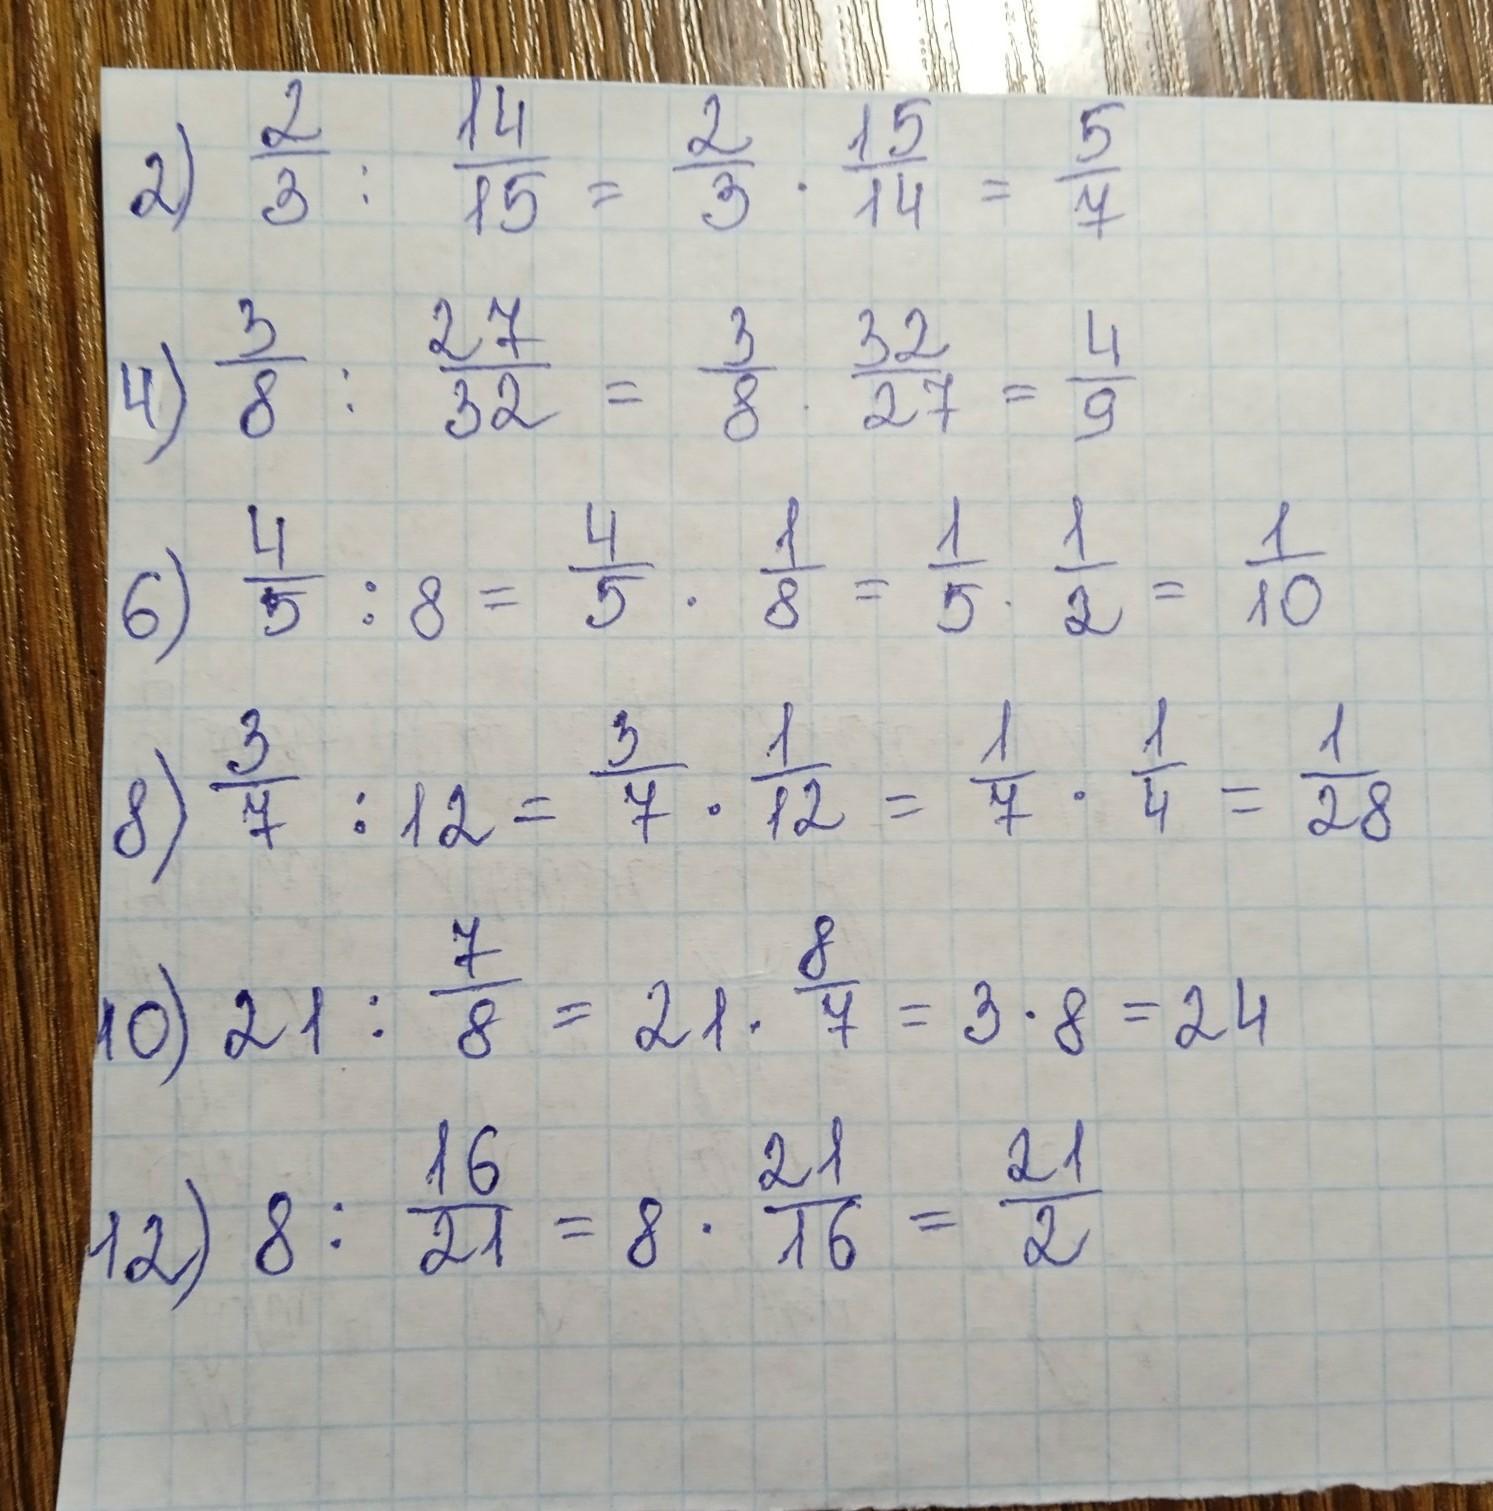 2) 2/3 : 14/15 = 2/3 · 15/14 = 5/7
4) 3/8 : 27/32 = 3/8 · 32/27 = 4/9
6) 4/5 : 8 = 4/5 · 1/8 = 1/5 · 1/2 = 1/10
8) 3/7 : 12 = 3/7 · 1/12 = 1/7 · 1/4 = 1/28
10) 21 : 7/8 = 21 · 8/7 = 3 · 8 = 24
12) 8 : 16/21 = 8 · 21/16 = 21/2